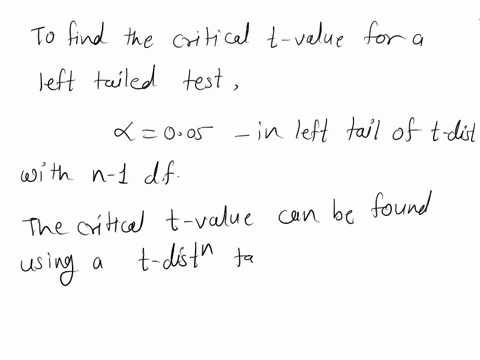 To find the critical t-value for a
left tailed test,
α = 0.05 - in left tail of t-dist
with n-1 df.
The critical t-value can be found
using a t-distⁿ ta